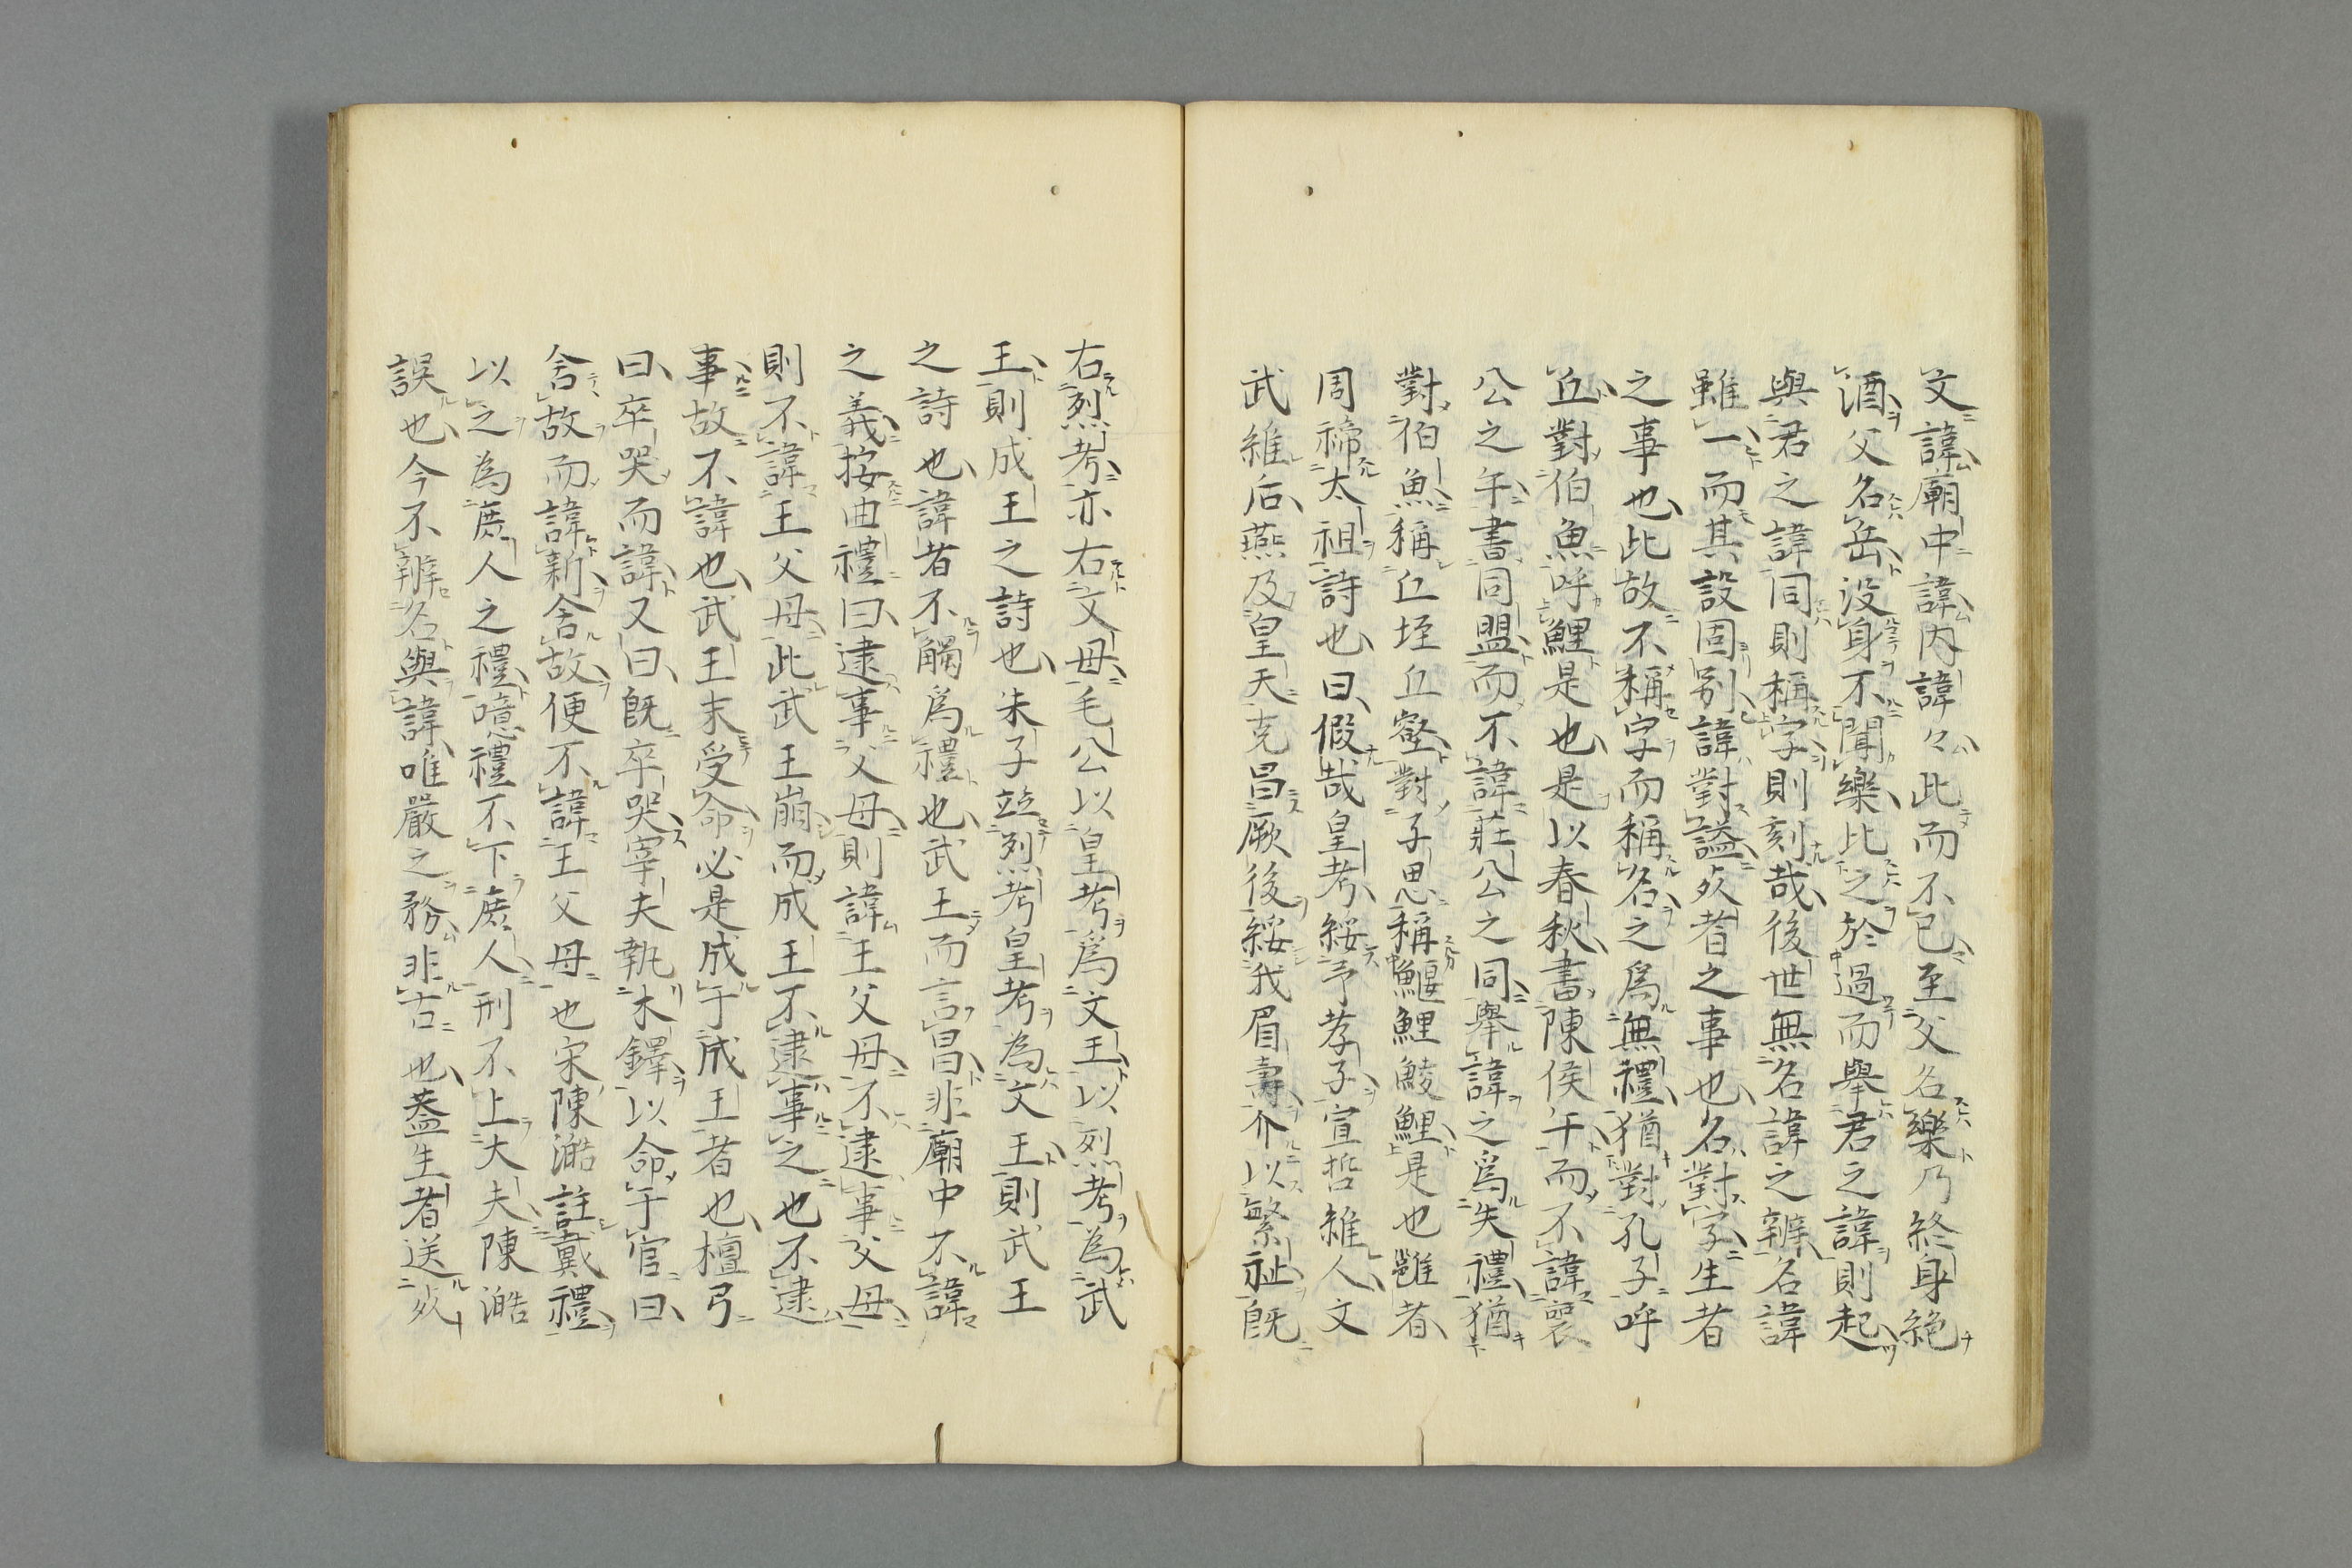 文諱廟中諱内諱々此而不已至父名樂乃終身絶
酒父名岳没身不聞樂比之於過而舉君之諱則起
與君之諱同則稱字則刻哉後世無名諱之辨名諱
雖一而其設固別諱對謚死者之事也名對字生者
之事也此故不稱字而稱名之爲無禮猶對孔子呼
丘對伯魚呼鯉是也是以春秋書陳侯午而不諱襄
公之午書同盟而不諱莊公之同舉諱之爲失禮猶
對伯魚稱丘垤丘壑對子思稱鰋鯉鯪鯉是也雝者
周禘太祖詩也曰假哉皇考綏予孝子宣哲維人文
武維后燕及皇天克昌厥後綏我眉壽介以繁祉既
右烈考亦右文母毛公以皇考爲文王以烈考為武
王則成王之詩也朱子竝烈考皇考為文王則武王
之詩也諱者不觸爲禮也武王而言昌非廟中不諱
之義按曲禮曰逮事父母則諱王父母不逮事父母
則不諱王父母此武王崩而成王不逮事之也不逮
事故不諱也武王末受命必是成于成王者也檀弓
曰卒哭而諱又曰既卒哭宰夫執木鐸以命于宮曰
舍故而諱新舍故便不諱王父母也宋陳澔註戴禮
以之為庶人之禮噫禮不下庶人刑不上大夫陳澔
誤也今不辨名與諱唯嚴之務非古也蓋生者送死